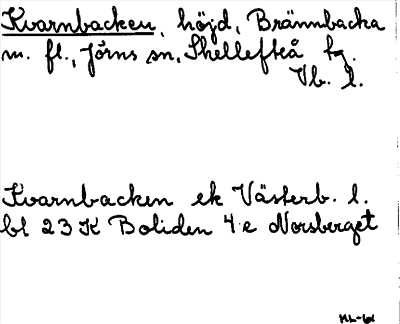 Kvarnbacken, höjd, Brännbacka
m. fl., Jörns sn, Skellefteå tg.
Vb. l.
Kvarnbacken ek Västerb. l.
bl 23 K Boliden 4 e Norsberget